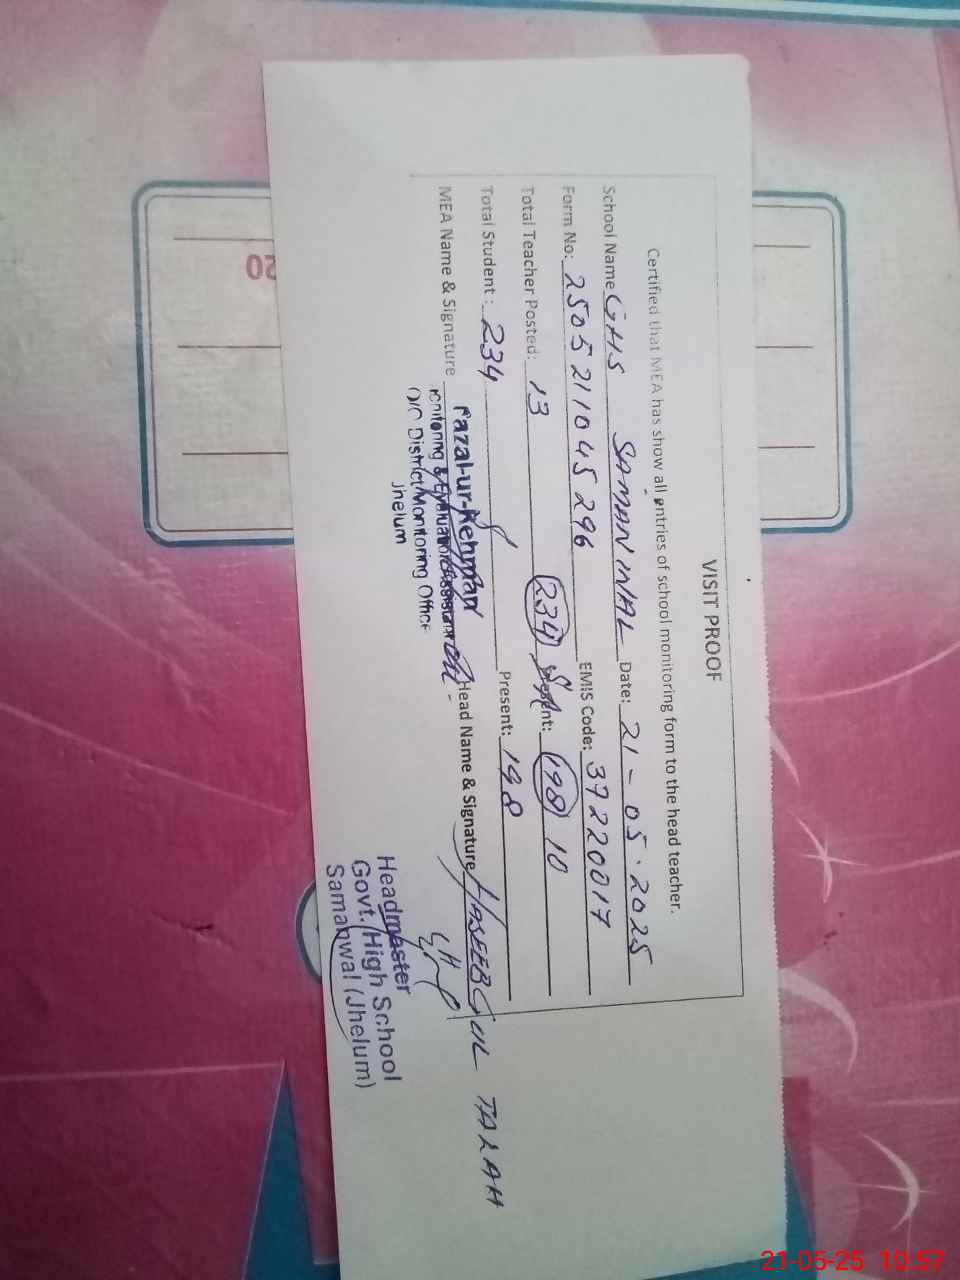 VISIT PROOF
Certified that MEA has show all entries of school monitoring form to the head teacher.
School Name GHS SAMANWAL Date: 21-05.2025
Form No: 250521104 5296 EMIS Code: 37220017
Total Teacher Posted: 13 (234) (198) 10
Total Student: 234 Present: 198
MEA Name & Signature Head Name & Signature HASEEB GUL TALAH
Fazal-ur-Rehman
Monitoring & Evaluation Assistant
O/O District Monitoring Office
Jhelum
Headmaster
Govt. High School
Samanwal (Jhelum)
20
21-05-25 10:57